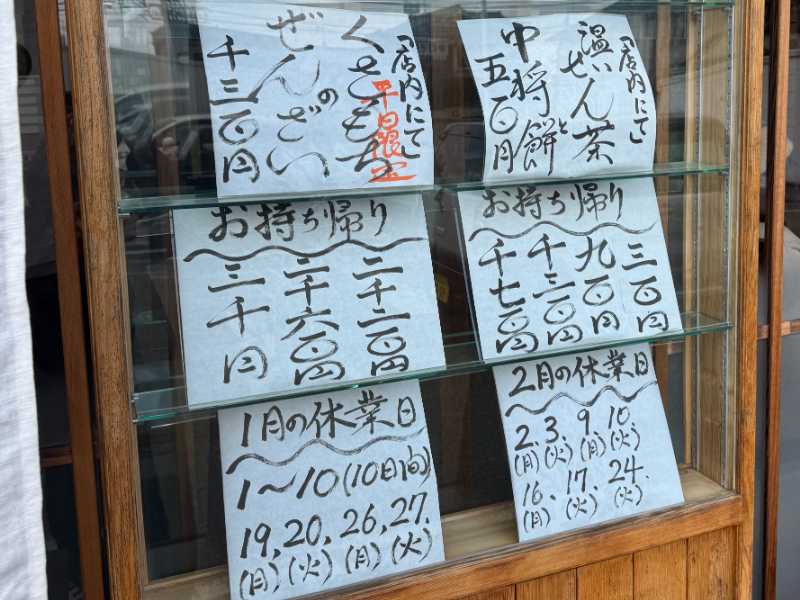 「店内にて」
くさもち
平日限定
の
ぜんざい
千三〇〇円
「店内にて」
温いせん茶
と
中将餅
五〇〇円
お持ち帰り
二千二〇〇円
二千六〇〇円
三千円
お持ち帰り
三〇〇円
九〇〇円
千三〇〇円
千七〇〇円
1月の休業日
1〜10(10日間)
19,20,26,27.
(月)(火)(月)(火)
2月の休業日
2.3.9.10.
(月)(火)(月)(火)
16.17.24.
(月)(火)(火)